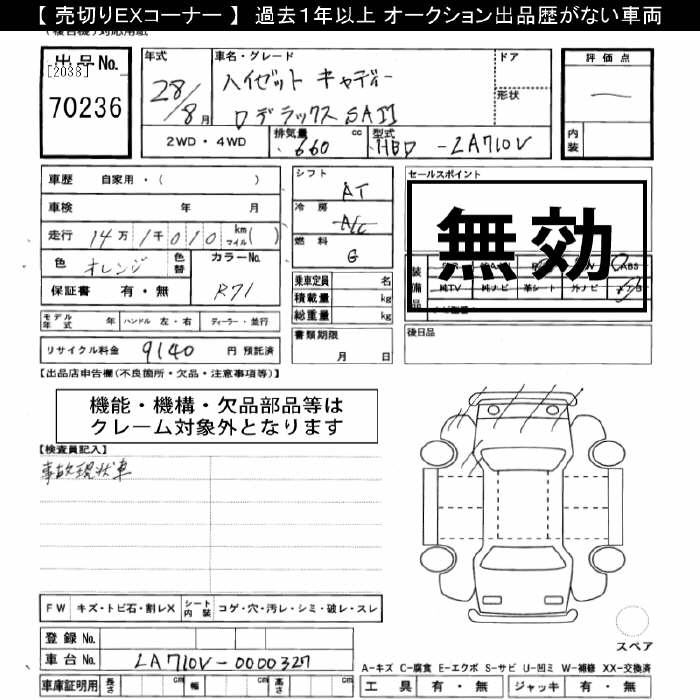 【 売切りEXコーナー 】 過去１年以上 オークション出品歴がない車両
出品No.
[2038]
70236
年式
28/8月
車名・グレード
ハイゼット キャディー
D デラックス SAIII
ドア
形状
評価点
—
内装
2WD・4WD
排気量 660 cc
型式 HBD-LA710V
車歴 自家用・( )
車検 年 月
走行 14万 1千 0 1 0 km マイル( )
色 オレンジ
色替
カラーNo. R71
保証書 有・無
シフト AT
冷房 A/C
燃料 G
乗車定員 名
積載量 kg
総重量 kg
セールスポイント
無効
装備品
ABS
純TV 純ナビ 革シート 外ナビ
モデル年式 年 ハンドル 左・右 ディーラー・並行
リサイクル料金 9140 円 預託済
書類期限
月 日
後日品
【出品店申告欄(不良箇所・欠品・注意事項等)】
機能・機構・欠品部品等は
クレーム対象外となります
【検査員記入】
事故現状車
FW キズ・トビ石・割レX シート内装 コゲ・穴・汚レ・シミ・破レ・スレ
登録No.
車台No. LA710V-0000327
車庫証明用 長さ cm 幅 cm 高さ cm
スペア
A-キズ C-腐食 E-エクボ S-サビ U-凹ミ W-補修 XX-交換済
工具 有・無 ジャッキ 有・無